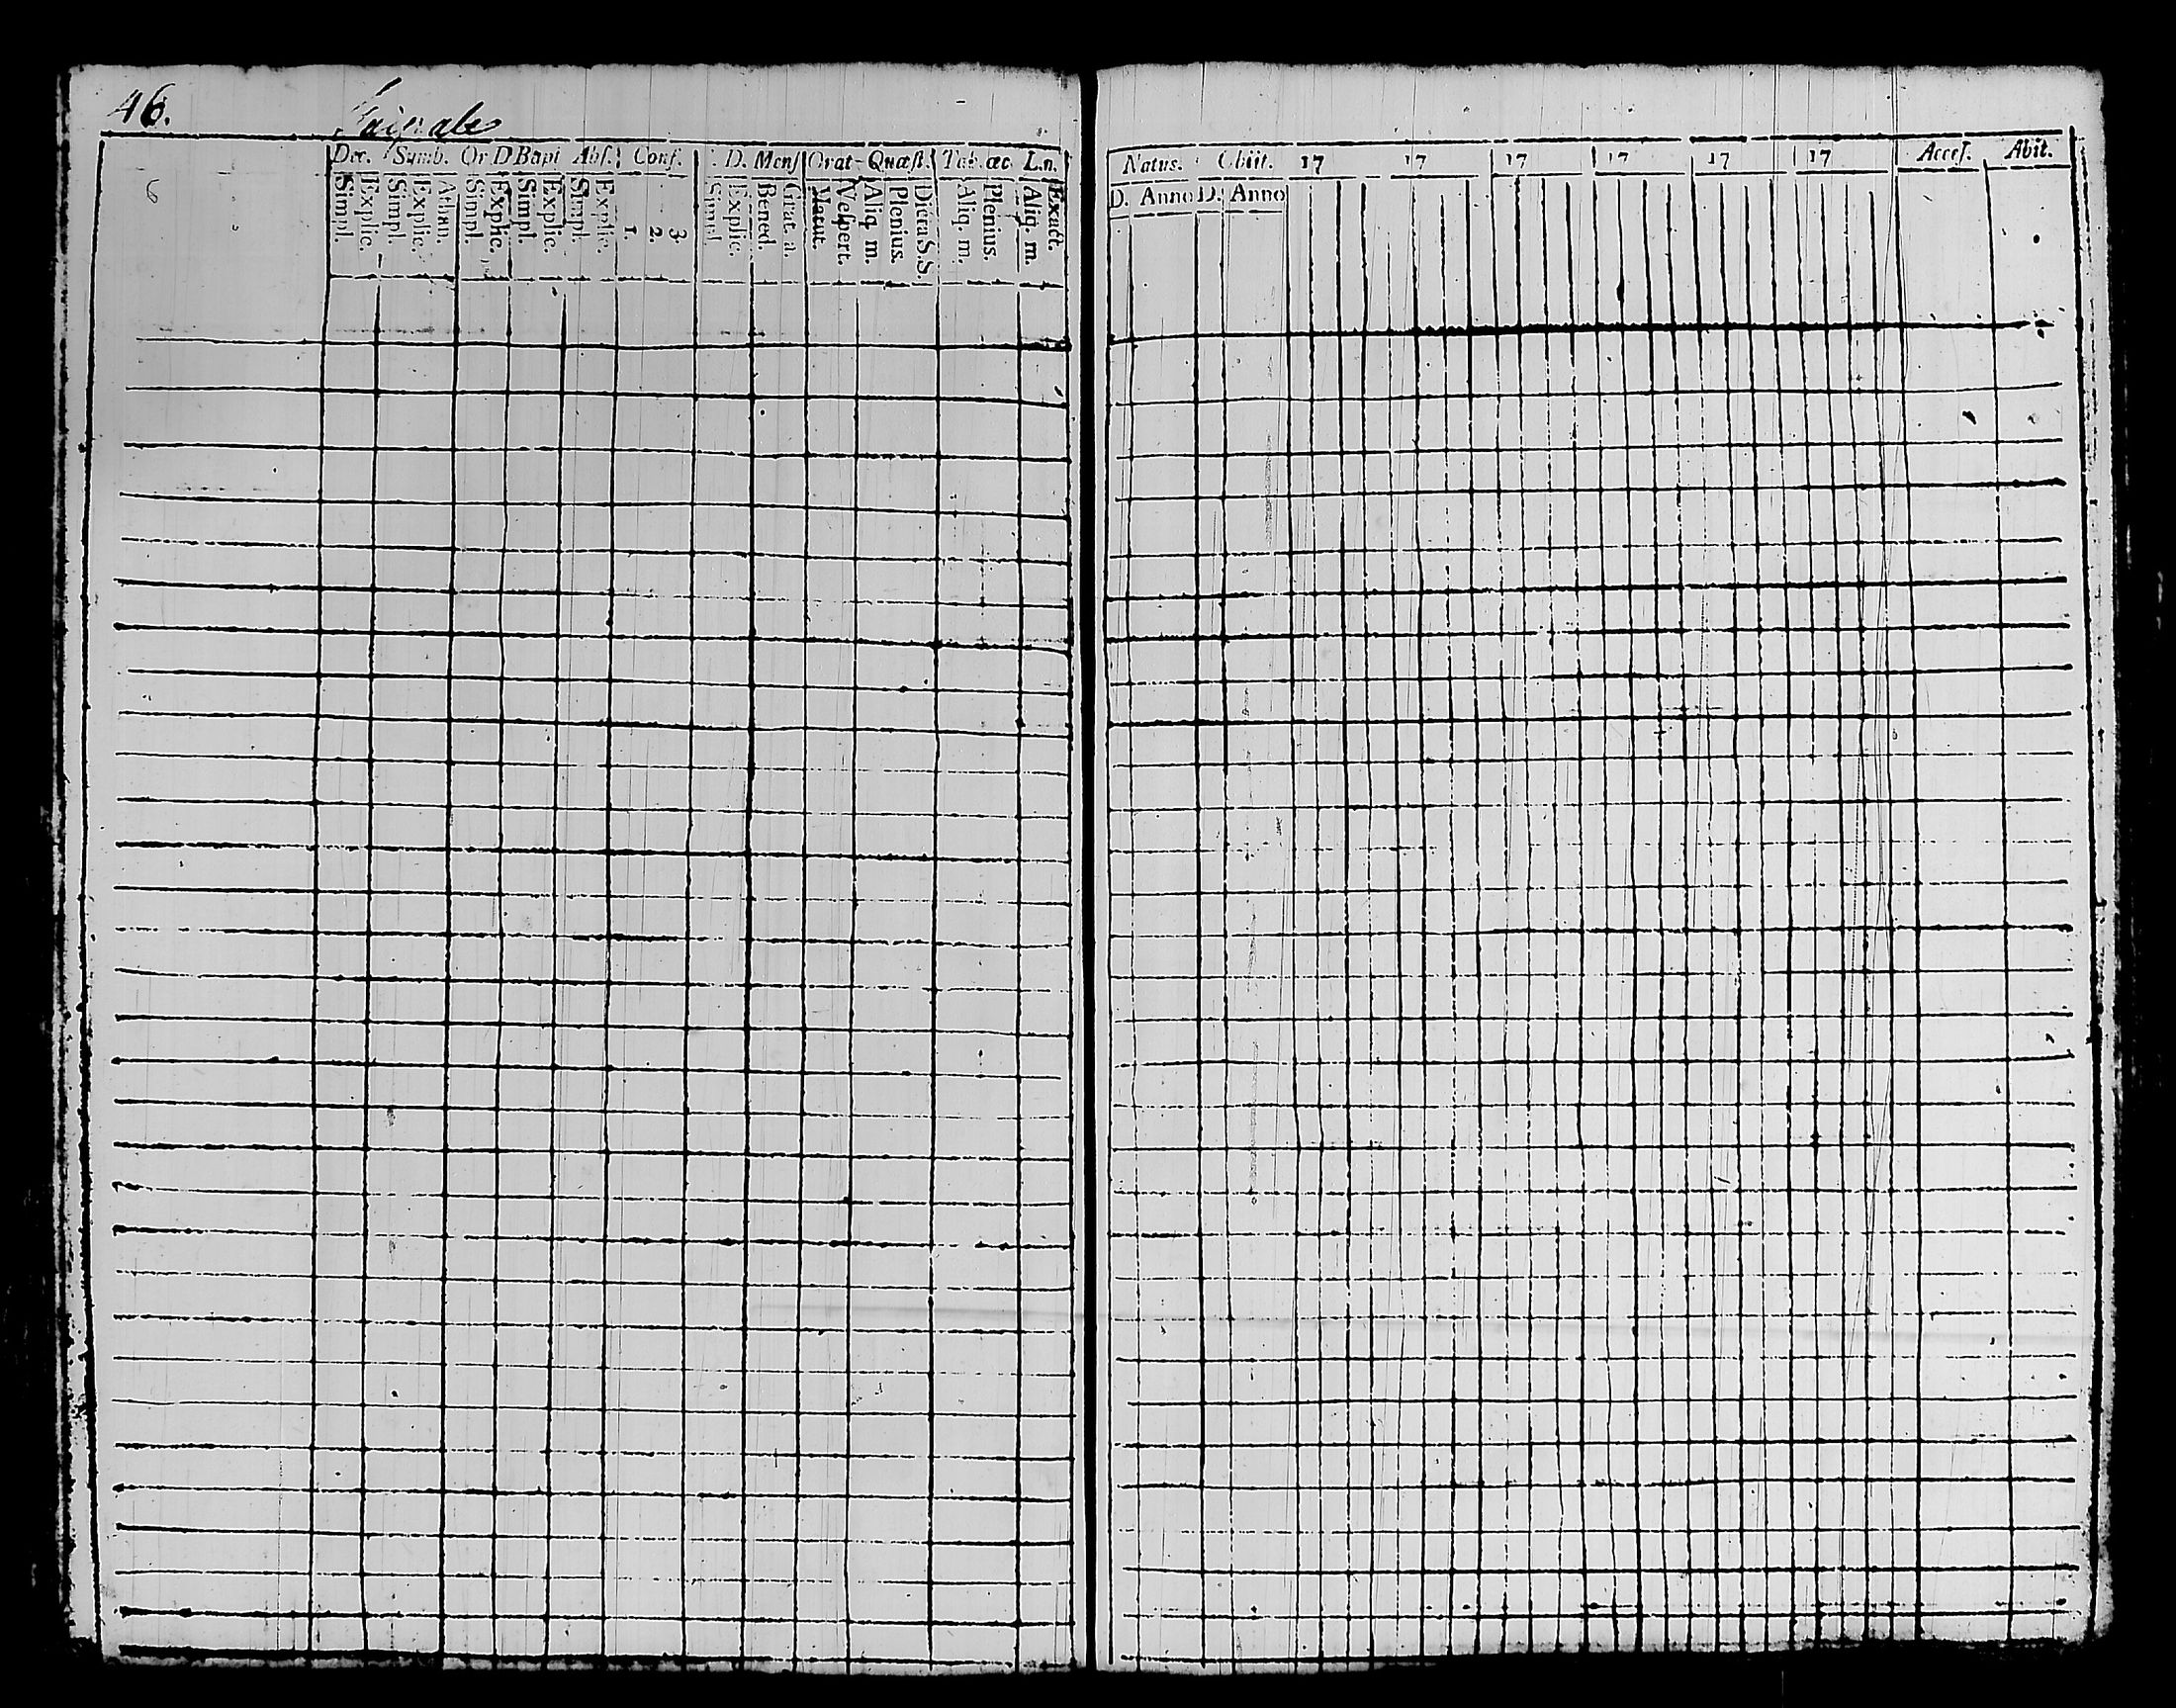 46.
Dec. Symb. Or D Bapt Abs. Conf. D. Mens Orat- Quæst. Tab. œc L.n.
Simpl. Explic. Simpl. Explic. Athan. Simpl. Explic. Simpl. Explic. Simpl. Explic. 1. 2. 3. Simpl Explic. Bened. Grat. a. Matut. Vespert. Aliq. m. Plenius. Dicta S.S. Aliq. m. Plenius. Aliq. m. Exact.
Natus. Obiit. 17 17 17 17 17 17 Access. Abit.
D. Anno D. Anno